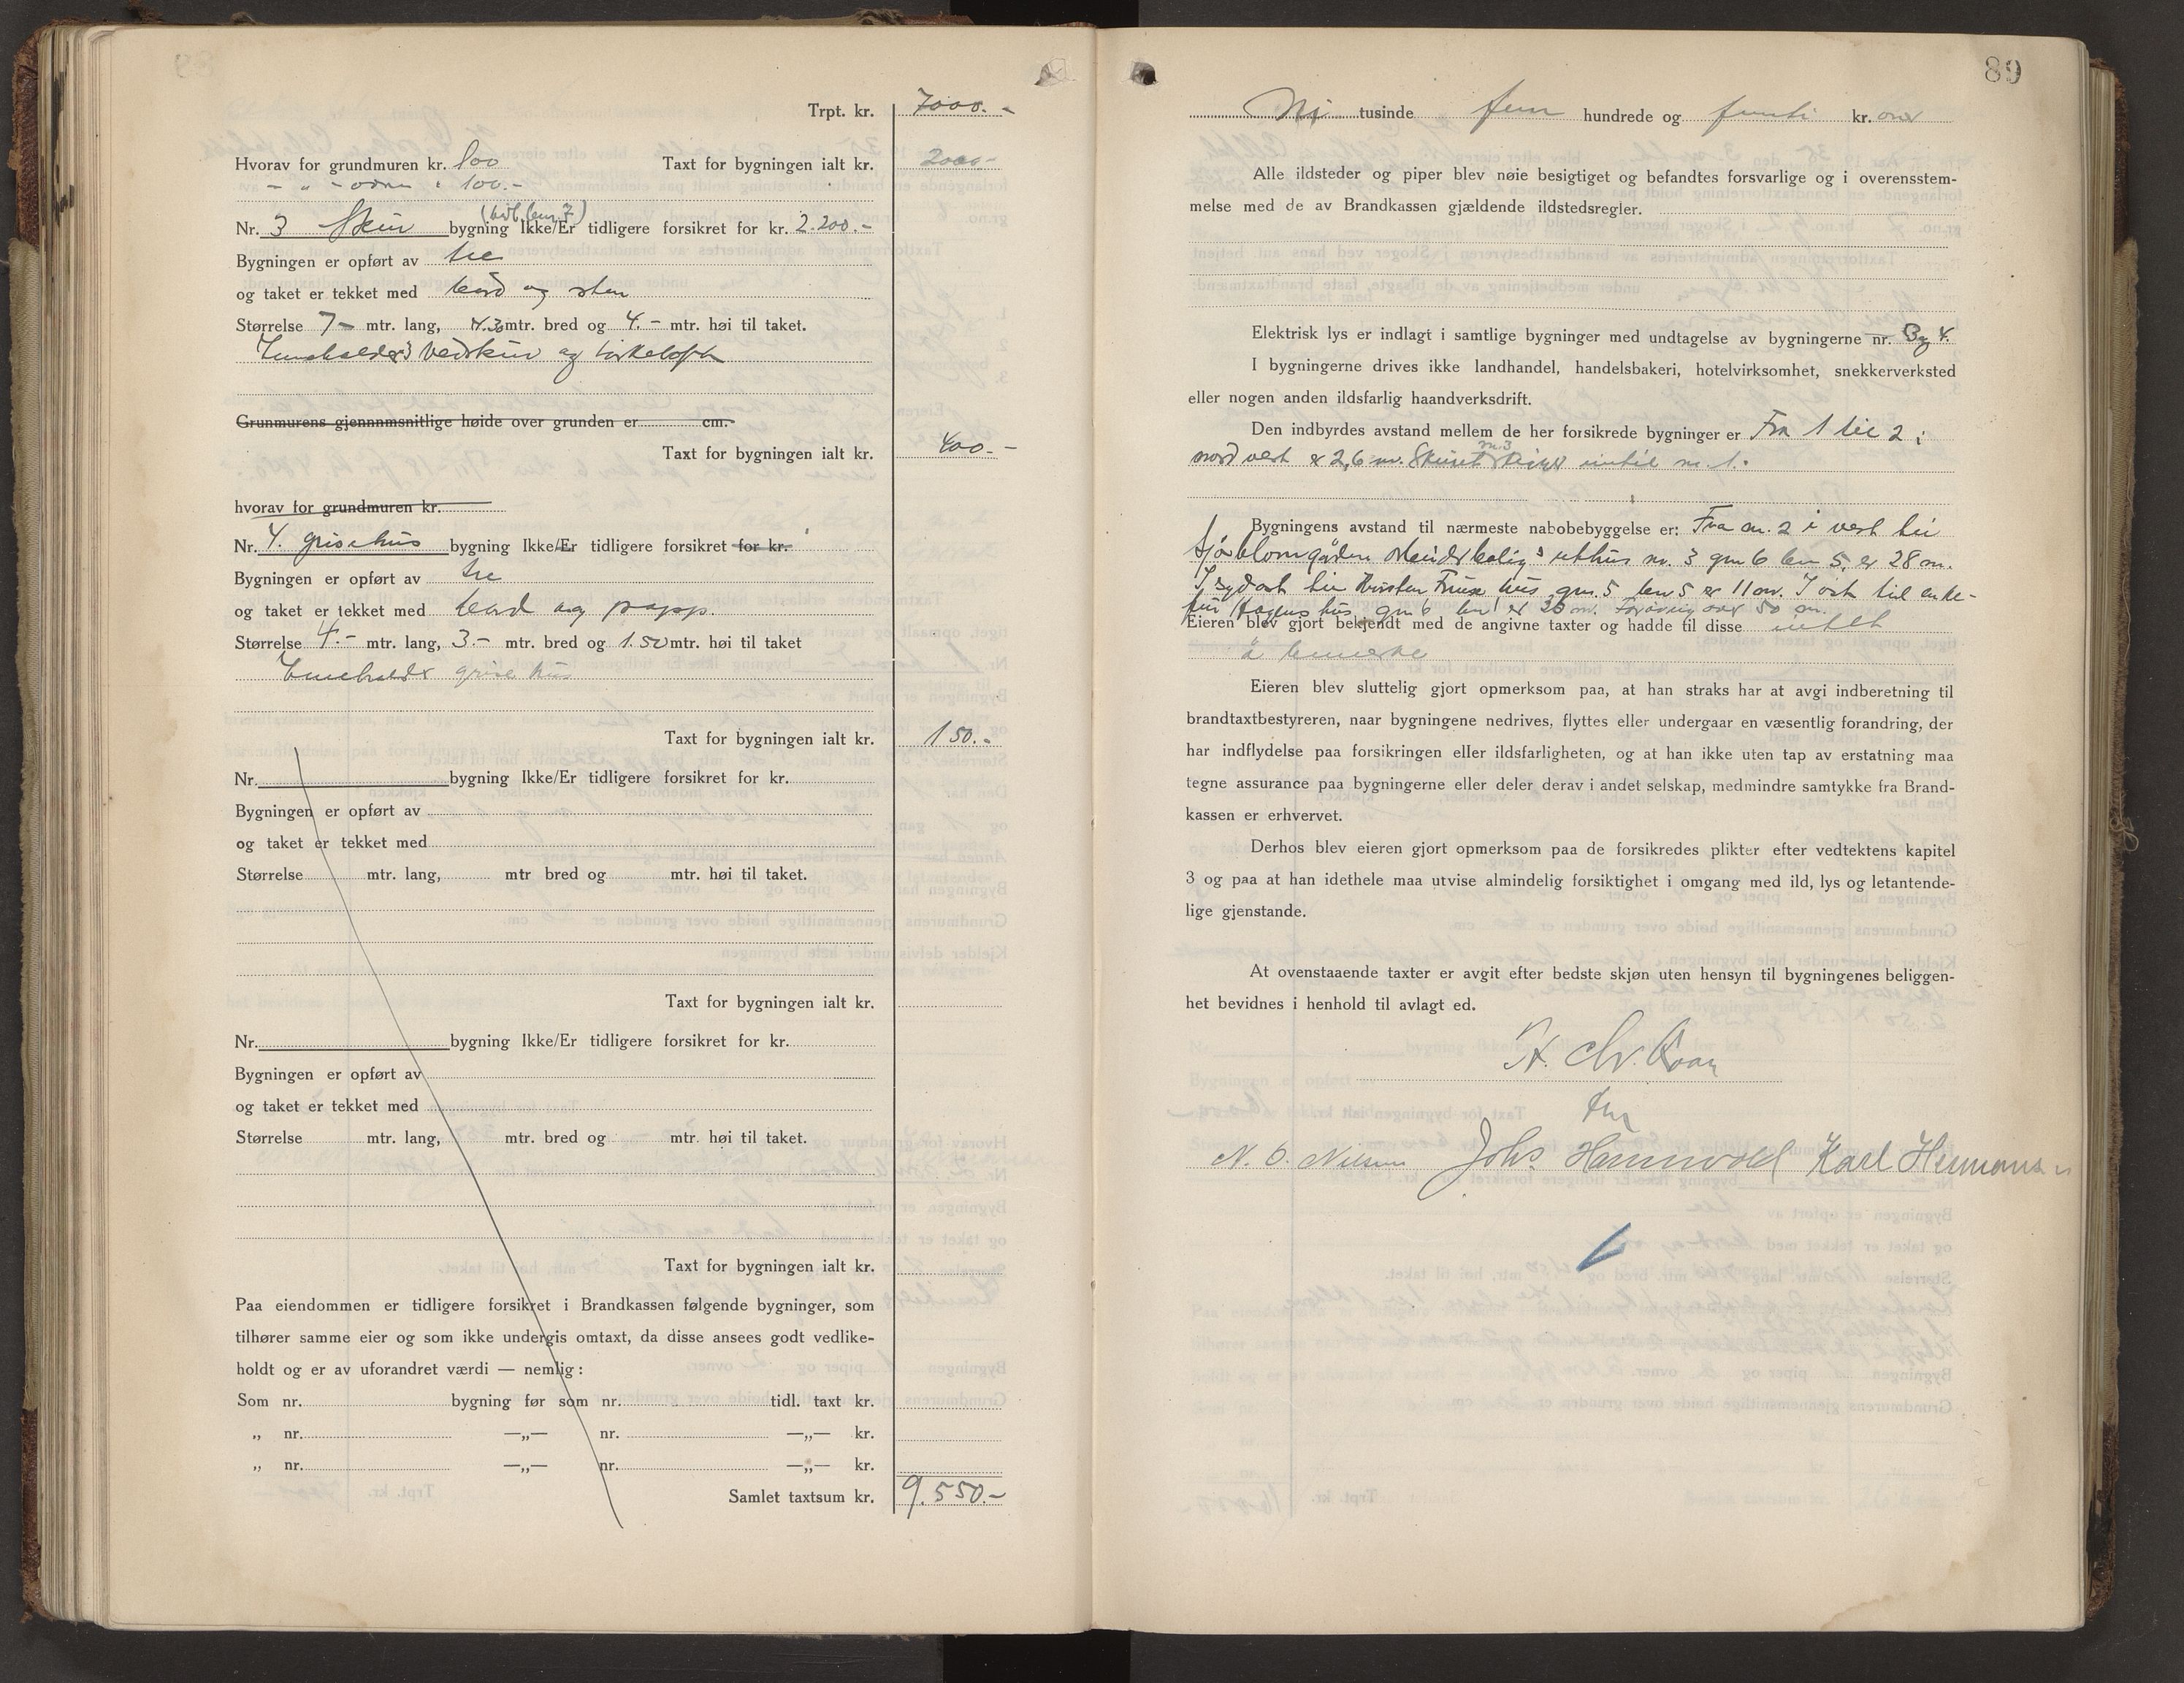 Trpt. kr. 7000.-
Hvorav for grundmuren kr. 800 Taxt for bygningen ialt kr. 2000-
- " - 100.-
Nr. 3 Skur bygning Ikke/Er tidligere forsikret for kr. 2.200.-
Bygningen er opført av tre
og taket er tekket med bord og sten
Størrelse 7- mtr. lang, 4.30 mtr. bred og 4.- mtr. høi til taket.
Inneholder vedskur og
Grunmurens gjennnmsnitlige høide over grunden er cm.
Taxt for bygningen ialt kr. 400.-
hvorav for grundmuren kr.
Nr. 4. grisehus bygning Ikke/Er tidligere forsikret for kr.
Bygningen er opført av tre
og taket er tekket med bord og papp.
Størrelse 4.- mtr. lang, 3.- mtr. bred og 1.50 mtr. høi til taket
Inneholder grisehus
Taxt for bygningen ialt kr. 150.-
Nr. bygning Ikke/Er tidligere forsikret for kr.
Bygningen er opført av
og taket er tekket med
Størrelse mtr. lang, mtr bred og mtr. høi til taket.
Taxt for bygningen ialt kr.
Nr. bygning Ikke/Er tidligere forsikret for kr.
Bygningen er opført av
og taket er tekket med
Størrelse mtr. lang, mtr. bred og mtr. høi til taket.
Taxt for bygningen ialt kr.
Paa eiendommen er tidligere forsikret i Brandkassen følgende bygninger, som
tilhører samme eier og som ikke undergis omtaxt, da disse ansees godt vedlike-
holdt og er av uforandret værdi — nemlig:
Som nr. bygning før som nr. tidl. taxt kr.
„ nr. —„— nr. —„— kr.
„ nr. —„— nr. —„— kr.
Samlet taxtsum kr. 9.550.-
89
Ni tusinde fem hundrede og femti kr.
Alle ildsteder og piper blev nøie besigtiget og befandtes forsvarlige og i overensstem-
melse med de av Brandkassen gjældende ildstedsregler.
Elektrisk lys er indlagt i samtlige bygninger med undtagelse av bygningerne nr. 3 og 4.
I bygningerne drives ikke landhandel, handelsbakeri, hotelvirksomhet, snekkerverksted
eller nogen anden ildsfarlig haandverksdrift.
Den indbyrdes avstand mellem de her forsikrede bygninger er Fra 1 til 2 i
nordvest er 2,6 m. Skuret nr. 3 inntil nr. 1.
Bygningens avstand til nærmeste nabobebyggelse er: Fra nr. 2 i vest til
uthus nr. 3 gnr 6 bnr 5, er 28 m.
I sydøst til hus, gnr. 5 bnr 5 er 11 m. I øst til enke-
fru Hagens hus gnr 6 bnr 1 er 50 m.
Eieren blev gjort bekjendt med de angivne taxter og hadde til disse intet
å bemerke
Eieren blev sluttelig gjort opmerksom paa, at han straks har at avgi indberetning til
brandtaxtbestyreren, naar bygningene nedrives, flyttes eller undergaar en væsentlig forandring, der
har indflydelse paa forsikringen eller ildsfarligheten, og at han ikke uten tap av erstatning maa
tegne assurance paa bygningerne eller deler derav i andet selskap, medmindre samtykke fra Brand-
kassen er erhvervet.
Derhos blev eieren gjort opmerksom paa de forsikredes plikter efter vedtektens kapitel
3 og paa at han idethele maa utvise almindelig forsiktighet i omgang med ild, lys og letantende-
lige gjenstande.
At ovenstaaende taxter er avgit efter bedste skjøn uten hensyn til bygningenes beliggen-
het bevidnes i henhold til avlagt ed.
N. O. Nilsen Johs. Hamnvold Karl Hermansen